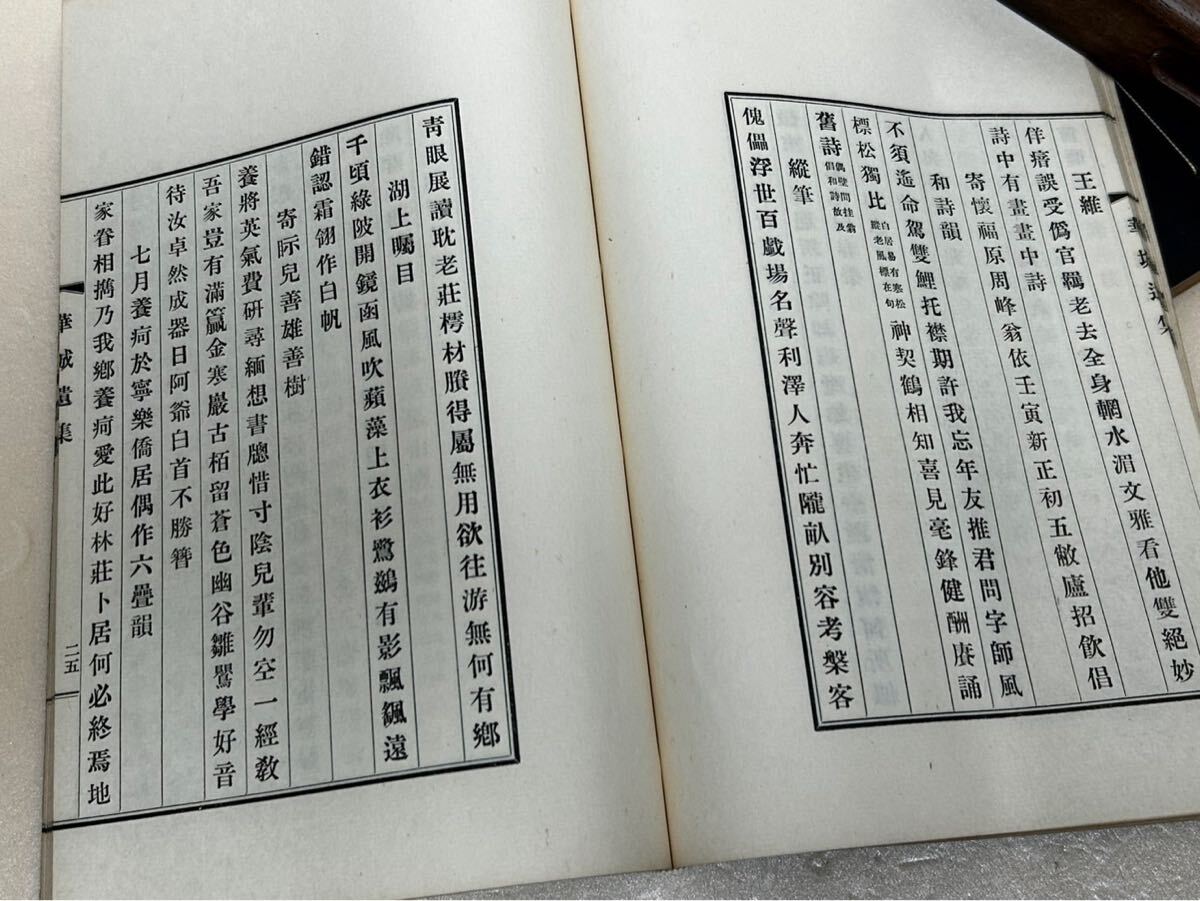 王維
佯瘖誤受僞官羈老去全身輞水湄文雅看他雙絕妙
詩中有畫畫中詩
寄懷福原周峰翁依壬寅新正初五敝廬招飲倡
和詩韻
不須遙命駕雙鯉托襟期許我忘年友推君問字師風
標松獨比白居易有寒松縱老風標在句神契鶴相知喜見毫鋒健酬賡誦
舊詩偶壁間挂翁倡和詩故及
縱筆
傀儡浮世百戲場名聲利澤人奔忙隴畝別容考槃客
靑眼展讀耽老莊樗材賸得屬無用欲往游無何有鄕
湖上矚目
千頃綠陂開鏡函風吹蘋藻上衣衫鷺鷀有影飄颻遠
錯認霜翎作白帆
寄示兒善雄善樹
養將英氣費研尋緬想書牕惜寸陰兒輩勿空一經敎
吾家豈有滿籯金寒巖古栢留蒼色幽谷雛鸎學好音
待汝卓然成器日阿爺白首不勝簪
七月養疴於寧樂僑居偶作六疊韻
家眷相攜乃我鄕養疴愛此好林莊卜居何必終焉地
華城遺集
二五